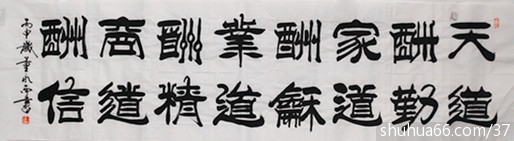 天道
酬勤
家道
酬龢
業道
酬精
商道
酬信
丙申歲
書
shuhua66.com/37